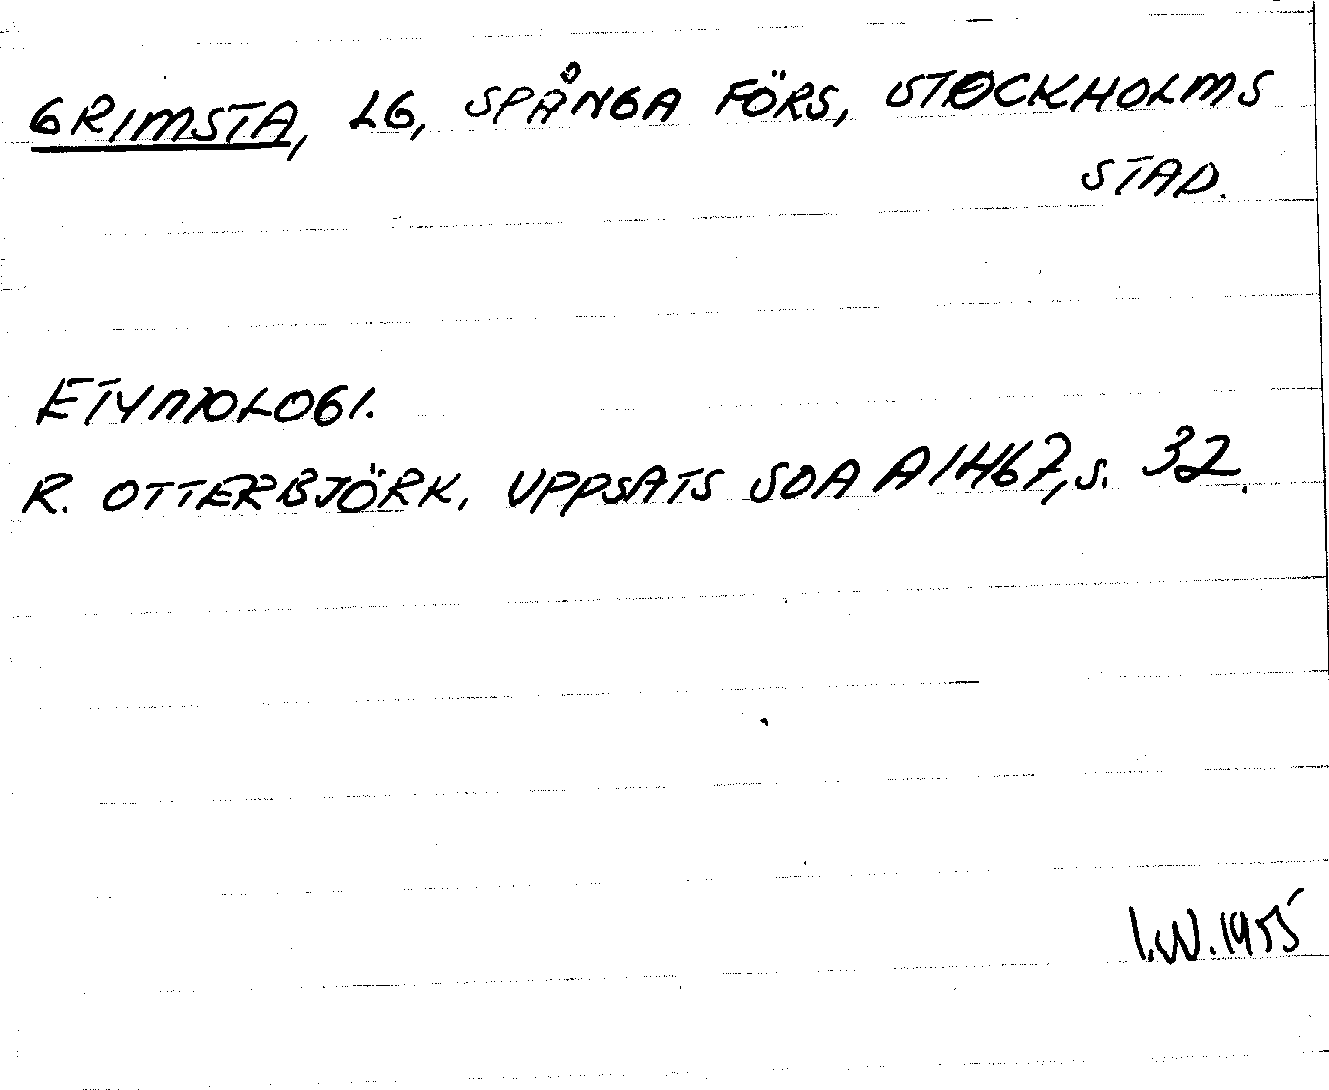 GRIMSTA, LG, SPÅNGA FÖRS, STOCKHOLMS
STAD.
ETYMOLOGI.
R. OTTERBJÖRK, UPPSATS SOA A1467, S. 32.
I.W. 1955